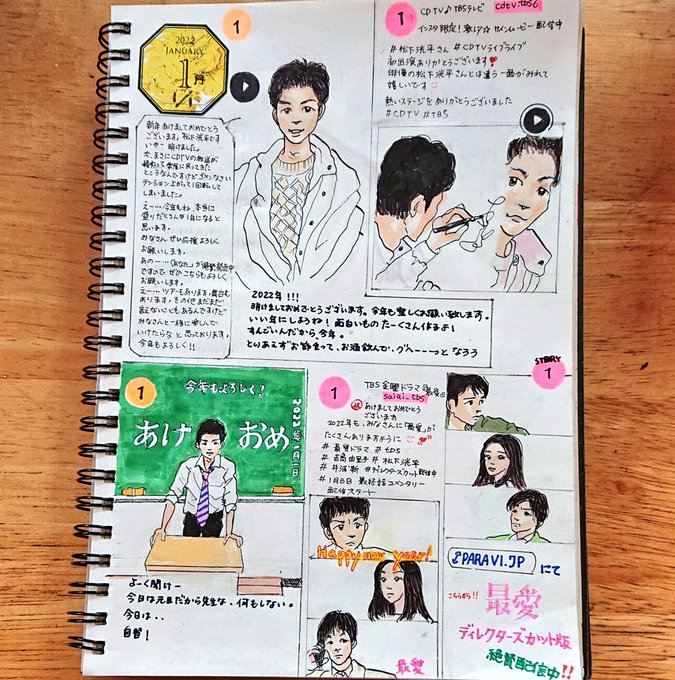 2022
JANUARY
1月
1/1
1
新年あけましておめでとう
ございます。松下洸平です
いやー 明けました。
今、まさにCDTVの放送が
終わって楽屋に戻ってきた
ところなんですけどゴメンなさい
テンション上がって1回転して
しまいました。
えー…今年もね、本当に
盛りだくさんな1年になると
思います。
みなさん ぜひ応援よろしく
お願いします。
あのー…「あなた」が絶賛発売中
ですので ぜひこちらもよろしく
お願いします。
えー… ツアーもあります。舞台も
あります。その他まだまだ
言えないこともあるんですけど
みなさんと一緒に楽しんで
いけたらな と思っております。
今年もよろしく!!
1
CDTV♪TBSテレビ
cdtv.tbs6
インスタ限定!激レア☆サインムービー配信中
#松下洸平さん #CDTVライブライブ
初出演ありがとうございます
俳優の松下洸平さんとは違う一面がみれて
嬉しいです
熱いステージをありがとうございました
#CDTV #TBS
2022年!!!
明けましておめでとうございます。今年も宜しくお願い致します。
いい年にしようね!面白いものたーくさん作るよ!
すんごいんだから、今年。
とりあえずお餅食って、お酒飲んで、グヘーーーっと なろう
1
今年もよろしく!
あけ おめ
2022年1月1日
よーく聞けー
今日は元旦だから先生な、何もしない。
今日は、、
自習!
1
TBS 金曜ドラマ『最愛』
saiai_tbs
あけましておめでとう
ございます
2022年も、みなさんに「最愛」が
たくさんありますように
#最愛ドラマ #tbs
#吉高由里子 #松下洸平
#井浦新 #ディレクターズカット配信中
#1月8日 最終話コメンタリー
配信スタート
Happy new year!
最愛
STORY
1
PARAVI.JP にて
こちらから!!
最愛
ディレクターズカット版
絶賛配信中!!